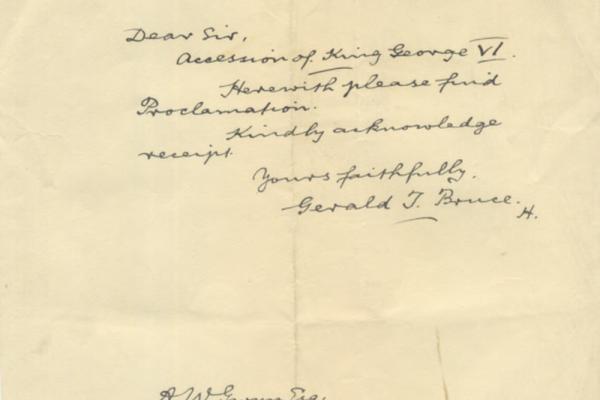 Dear Sir,
Accession of King George VI.
Herewith please find
Proclamation.
Kindly acknowledge
receipt.
Yours faithfully,
Gerald T. Bruce.
H.
A W Esq.